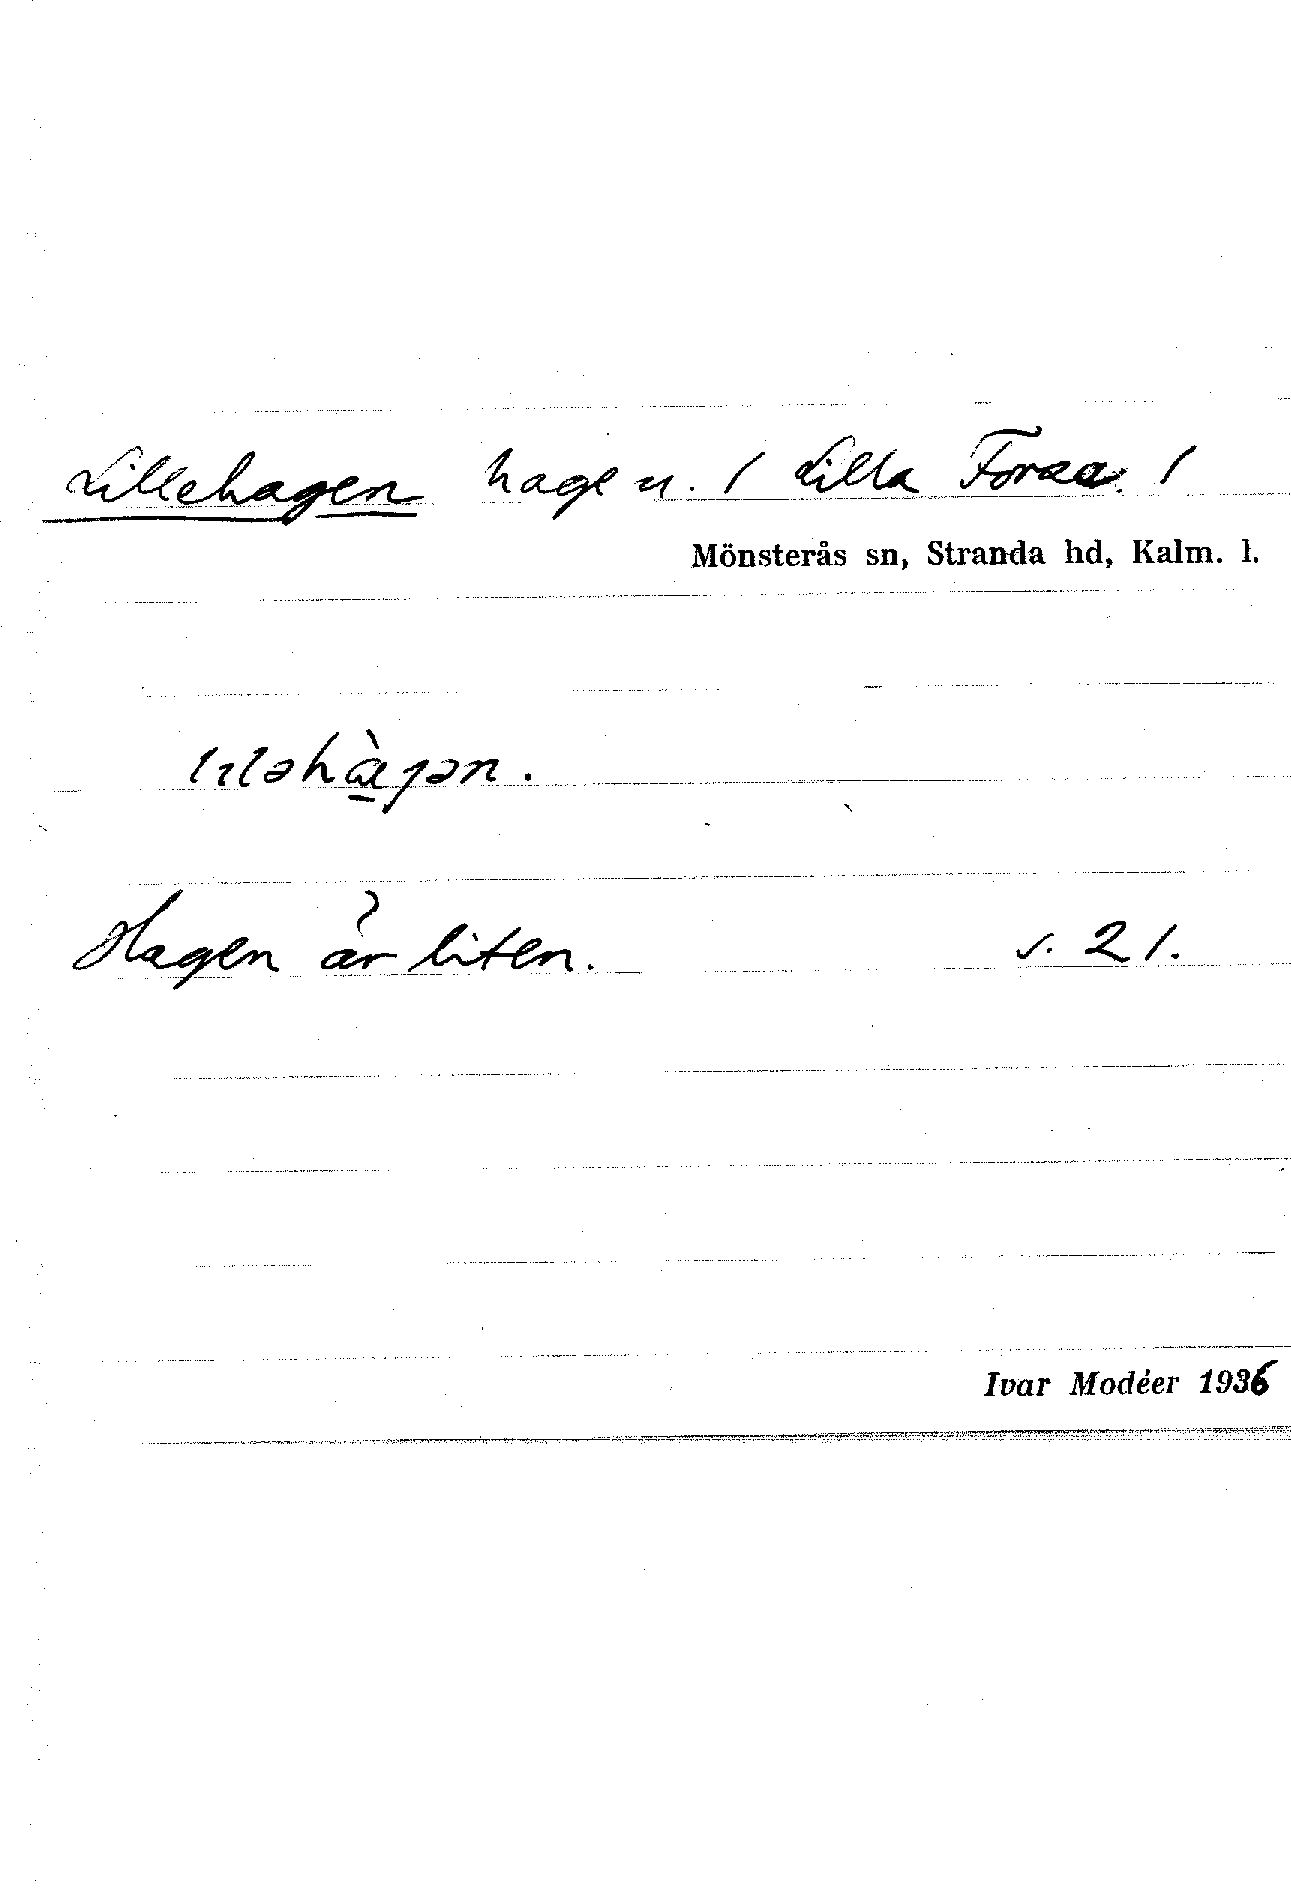 Lillehagen hage u. 1 Lilla Forsa. 1
Mönsterås sn, Stranda hd, Kalm. l.
lıləhàgən.
Hagen är liten. s. 21.
Ivar Modéer 1936